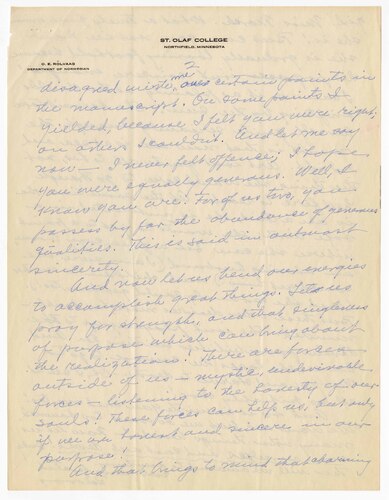 ST. OLAF COLLEGE
NORTHFIELD, MINNESOTA
O. E. ROLVAAG
DEPARTMENT OF NORWEGIAN
2
disagreed with me over certain points in
the manuscript. On some points I
yielded, because I felt you were right;
on others I couldn't. And let me say
now — I never felt offence; I hope
you were equally generous. Well, I
know you are! For of us two, you
possess by far the abundance of generous
qualities. This is said in outmost
sincerity.
And now let us bend our energies
to accomplish great things. Let us
pray for strength, and that singleness
of purpose which can bring about
the realizations! There are forces
outside of us — mystic, undivinable
forces — listening to the honesty of our
souls! These forces can help us, but only
if we are honest and sincere in our
purpose!
And that brings to mind that charming